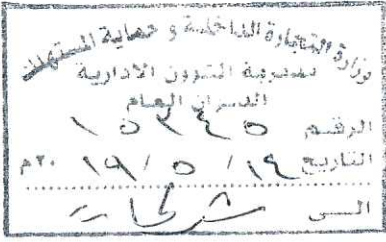 وزارة التجارة الداخلية و حماية المستهلك
مديرية الشؤون الادارية
الديوان العام
الرقم
التاريخ ١٤ / ٥ / ٢٠١٩ م
الى